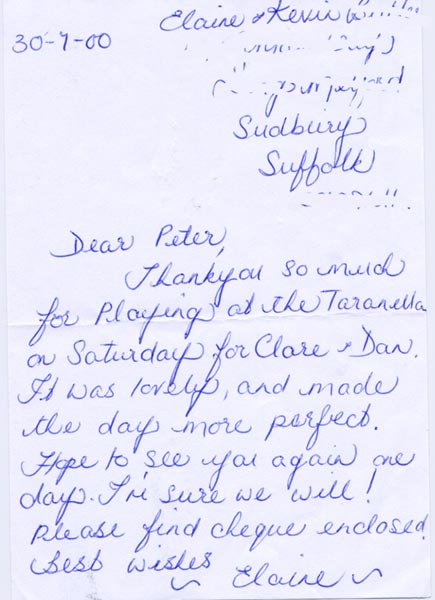 Elaine & Kevin
30-7-00
Sudbury
Suffolk
Dear Peter,
Thankyou so much
for Playing at the Taranella
on Saturday for Clare & Dan.
It was lovely, and made
the day more perfect.
Hope to see you again one
day. I'm sure we will!
Please find cheque enclosed.
Best wishes
~ Elaine ~